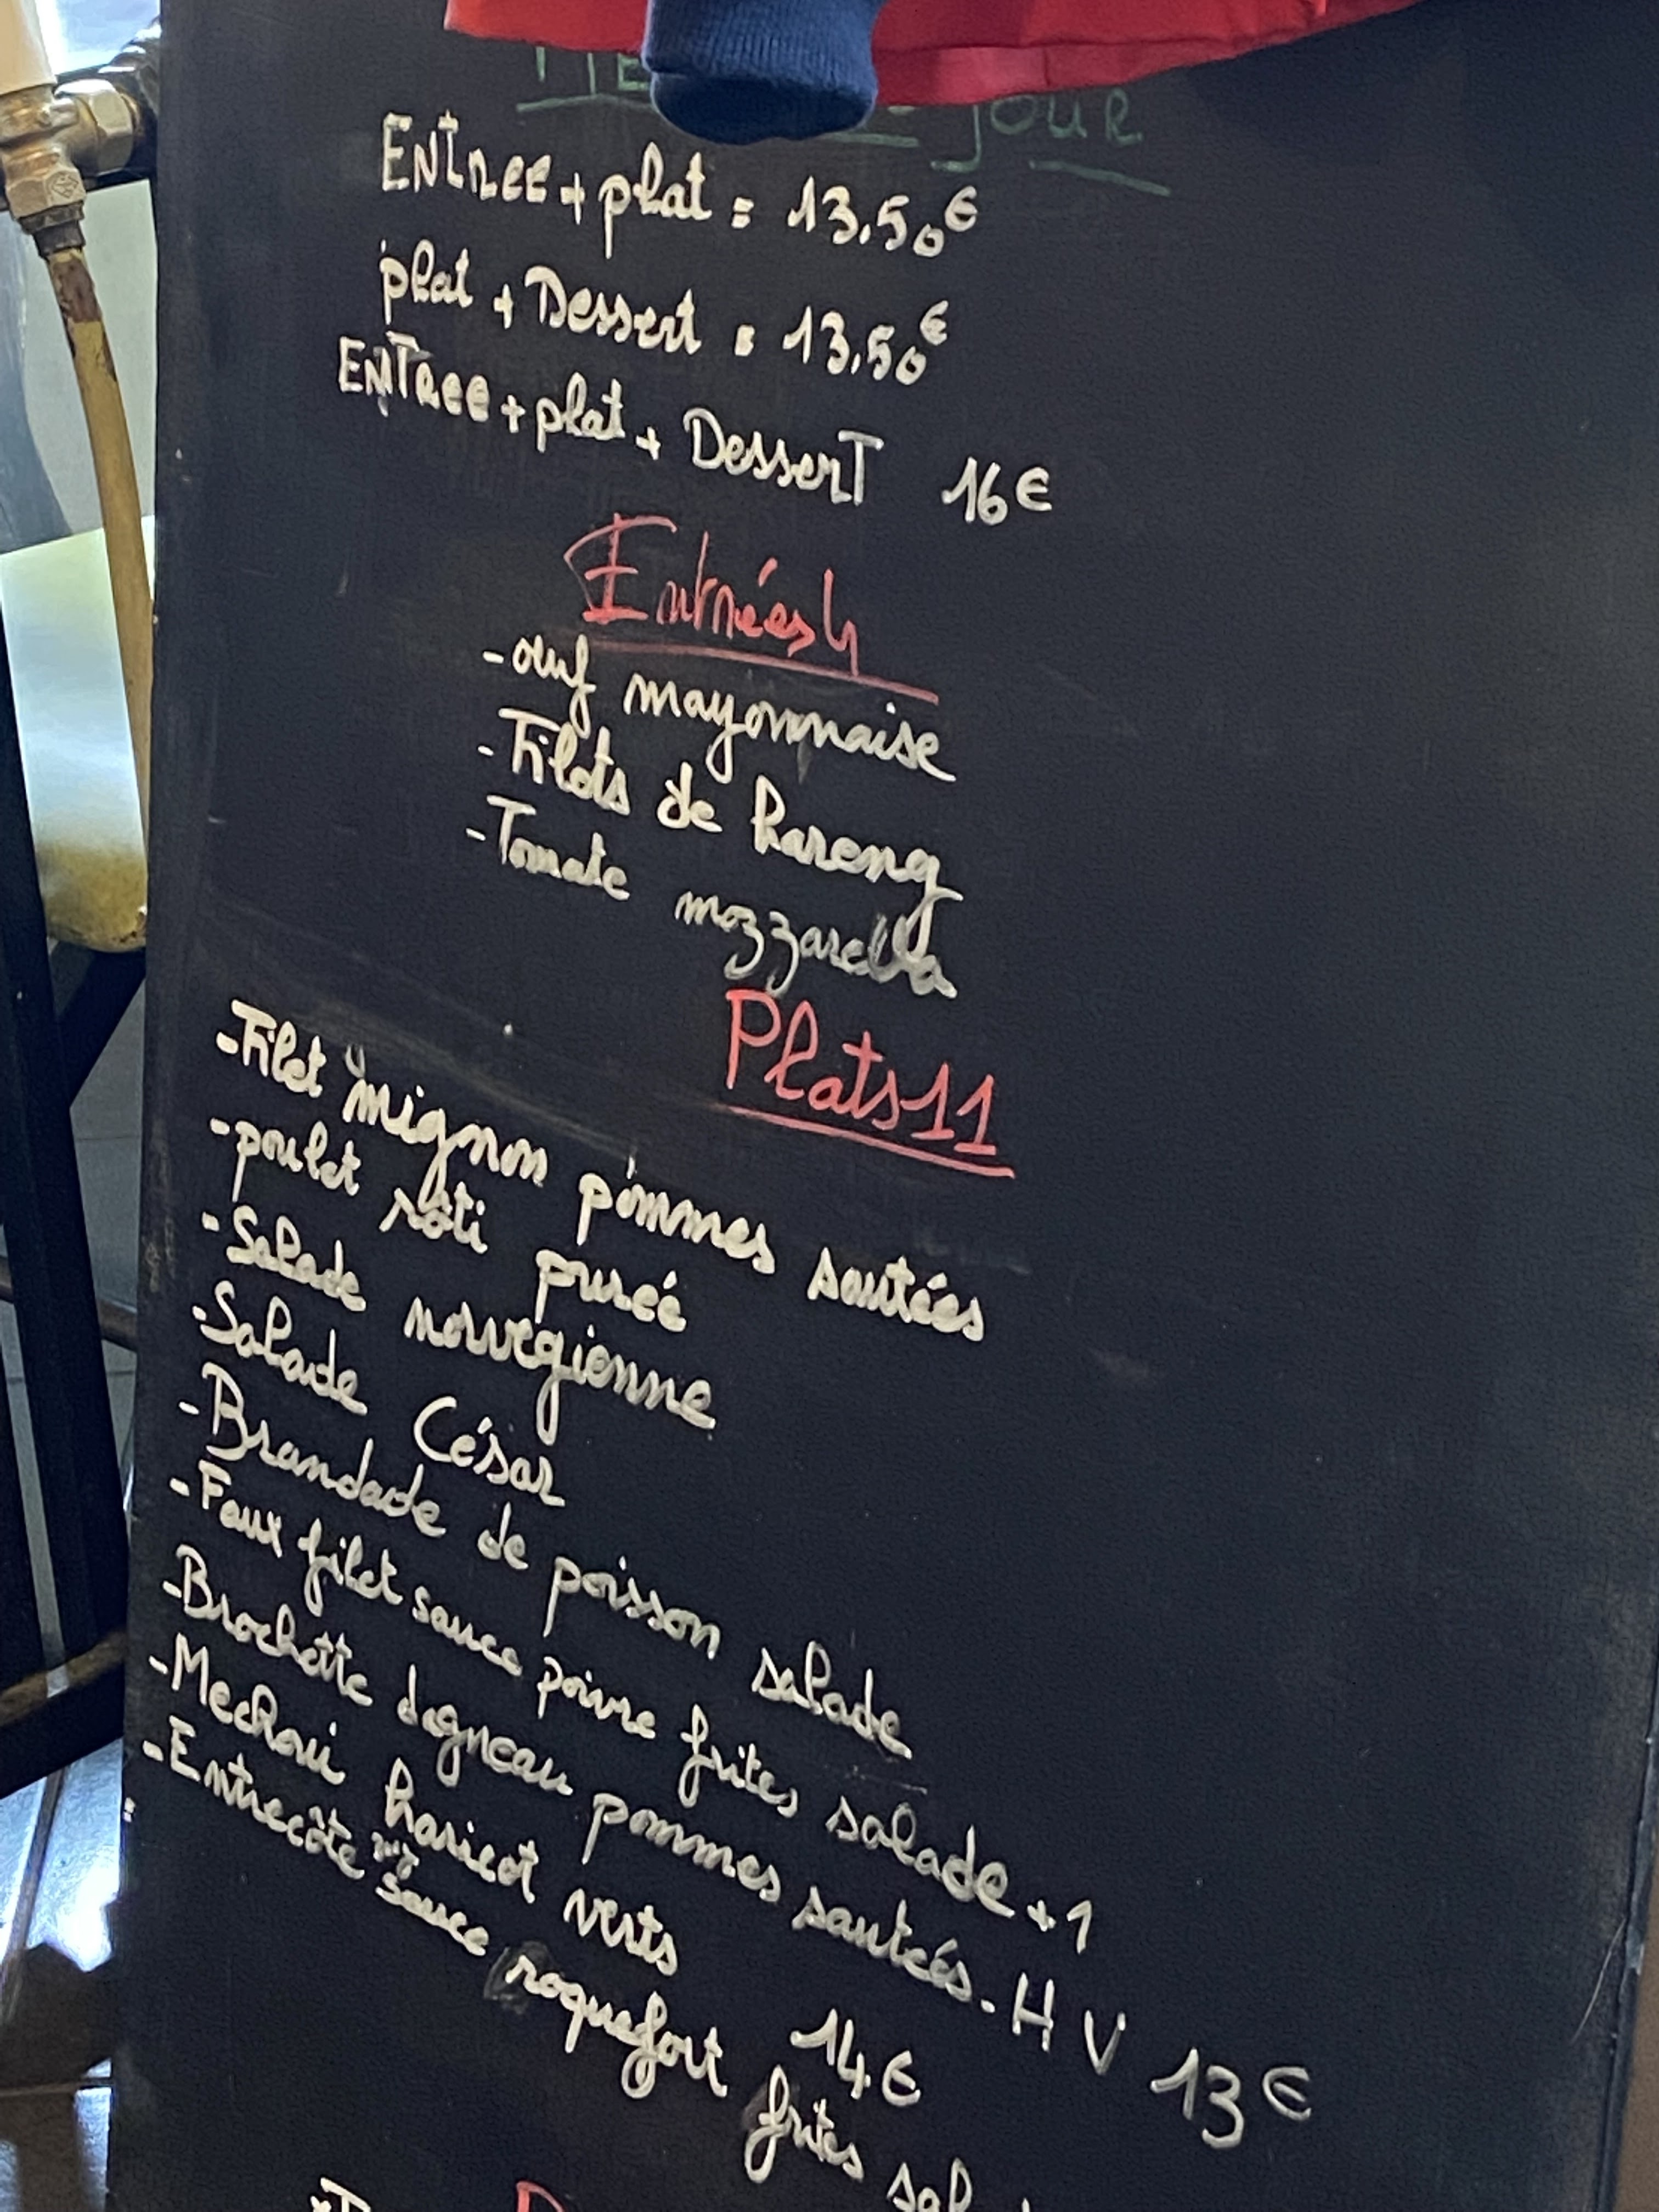 jour
Entree + plat = 13.50€
plat + Dessert = 13.50€
Entree + plat + Dessert 16€
Entrées 4
- œuf mayonnaise
- Filets de hareng
- Tomate mozzarella
Plats 11
- Filet mignon pommes sautées
- poulet rôti purée
- Salade norvégienne
- Salade César
- Brandade de poisson salade
- Faux filet sauce poivre frites salade + 1
- Brochette dagneau pommes sautées. H V 13€
- Mechoui haricot verts 14€
- Entrecôte sauce roquefort frites sal